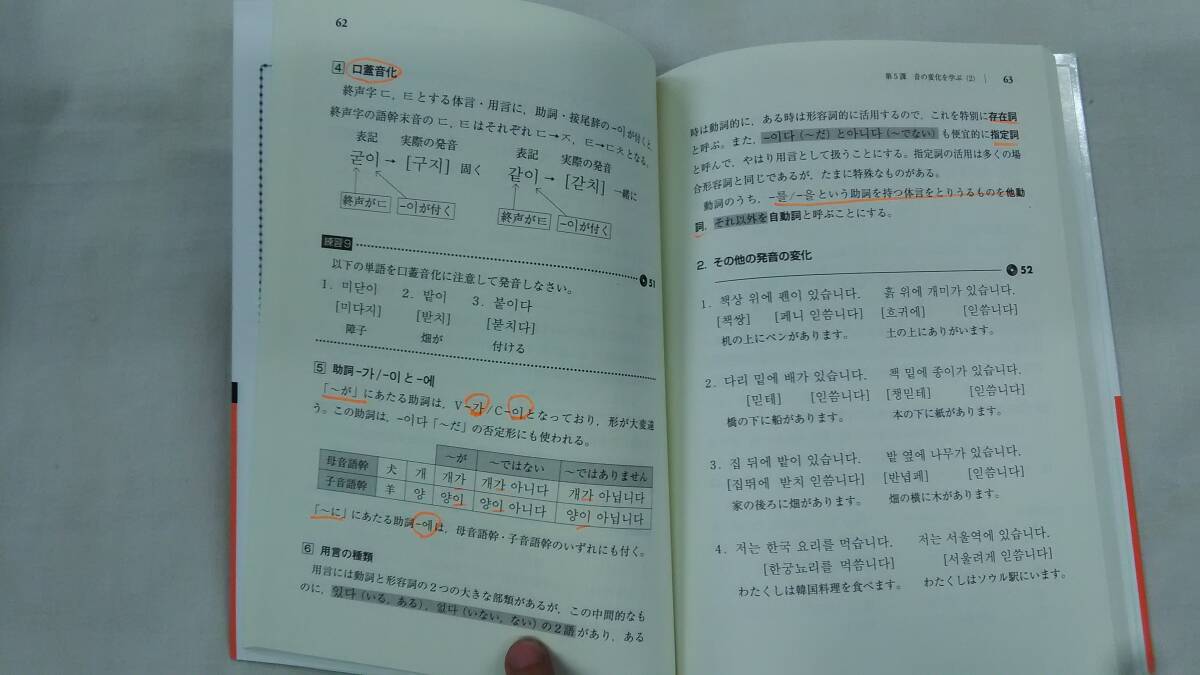 62
4 口蓋音化
終声字ㄷ，ㅌとする体言・用言に，助詞・接尾辞の-이が付くと，
終声字の語幹末音のㄷ，ㅌはそれぞれㄷ→ㅈ，ㅌ→ㄷㅊとなる．
表記 実際の発音 表記 実際の発音
굳이 → [구지] 固く 같이 → [갇치] 一緒に
終声がㄷ -이が付く 終声がㅌ -이が付く
練習9
51
以下の単語を口蓋音化に注意して発音しなさい。
1．미닫이 2．밭이 3．붙이다
[미다지] [받치] [붇치다]
障子 畑が 付ける
5 助詞-가/-이と-에
「～が」にあたる助詞は，V-가/C-이となっており，形が大変違
う。この助詞は，-이다「～だ」の否定形にも使われる。
～が ～ではない ～ではありません
母音語幹 犬 개 개가 개가 아니다 개가 아닙니다
子音語幹 羊 양 양이 양이 아니다 양이 아닙니다
「～に」にあたる助詞-에は，母音語幹・子音語幹のいずれにも付く。
6 用言の種類
用言には動詞と形容詞の2つの大きな部類があるが，この中間的なも
のに，있다（いる，ある），없다（いない，ない）の2語があり，ある
第5課 音の変化を学ぶ（2） 63
時は動詞的に，ある時は形容詞的に活用するので，これを特別に存在詞
と呼ぶ。また，-이다（～だ）と아니다（～でない）も便宜的に指定詞
と呼んで，やはり用言として扱うことにする。指定詞の活用は多くの場
合形容詞と同じであるが，たまに特殊なものがある。
動詞のうち，-를/-을という助詞を持つ体言をとりうるものを他動
詞，それ以外を自動詞と呼ぶことにする。
2．その他の発音の変化
52
1．책상 위에 펜이 있습니다． 흙 위에 개미가 있습니다．
[책쌍] [페니 읻씀니다] [흐귀에] [읻씀니다]
机の上にペンがあります。 土の上にありがいます。
2．다리 밑에 배가 있습니다． 책 밑에 종이가 있습니다．
[믿테] [읻씀니다] [챙믿테] [읻씀니다]
橋の下に船があります。 本の下に紙があります。
3．집 뒤에 밭이 있습니다． 밭 옆에 나무가 있습니다．
[집뛰에 받치 읻씀니다] [반녑페] [읻씀니다]
家の後ろに畑があります。 畑の横に木があります。
4．저는 한국 요리를 먹습니다． 저는 서울역에 있습니다．
[한궁뇨리를 먹씀니다] [서울려게 읻씀니다]
わたくしは韓国料理を食べます。 わたくしはソウル駅にいます。